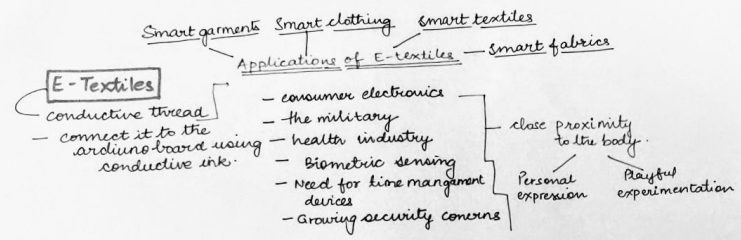 Smart garments Smart clothing smart textiles
Applications of E-textiles — smart fabrics
E-Textiles
conductive thread
— connect it to the
ardiuno board using
conductive ink.
— consumer electronics
— the military
— health industry
— Biometric sensing
— Need for time mangament
devices
— Growing security conerns
— close proximity
to the body.
Personal
expression
Playful
experimentation